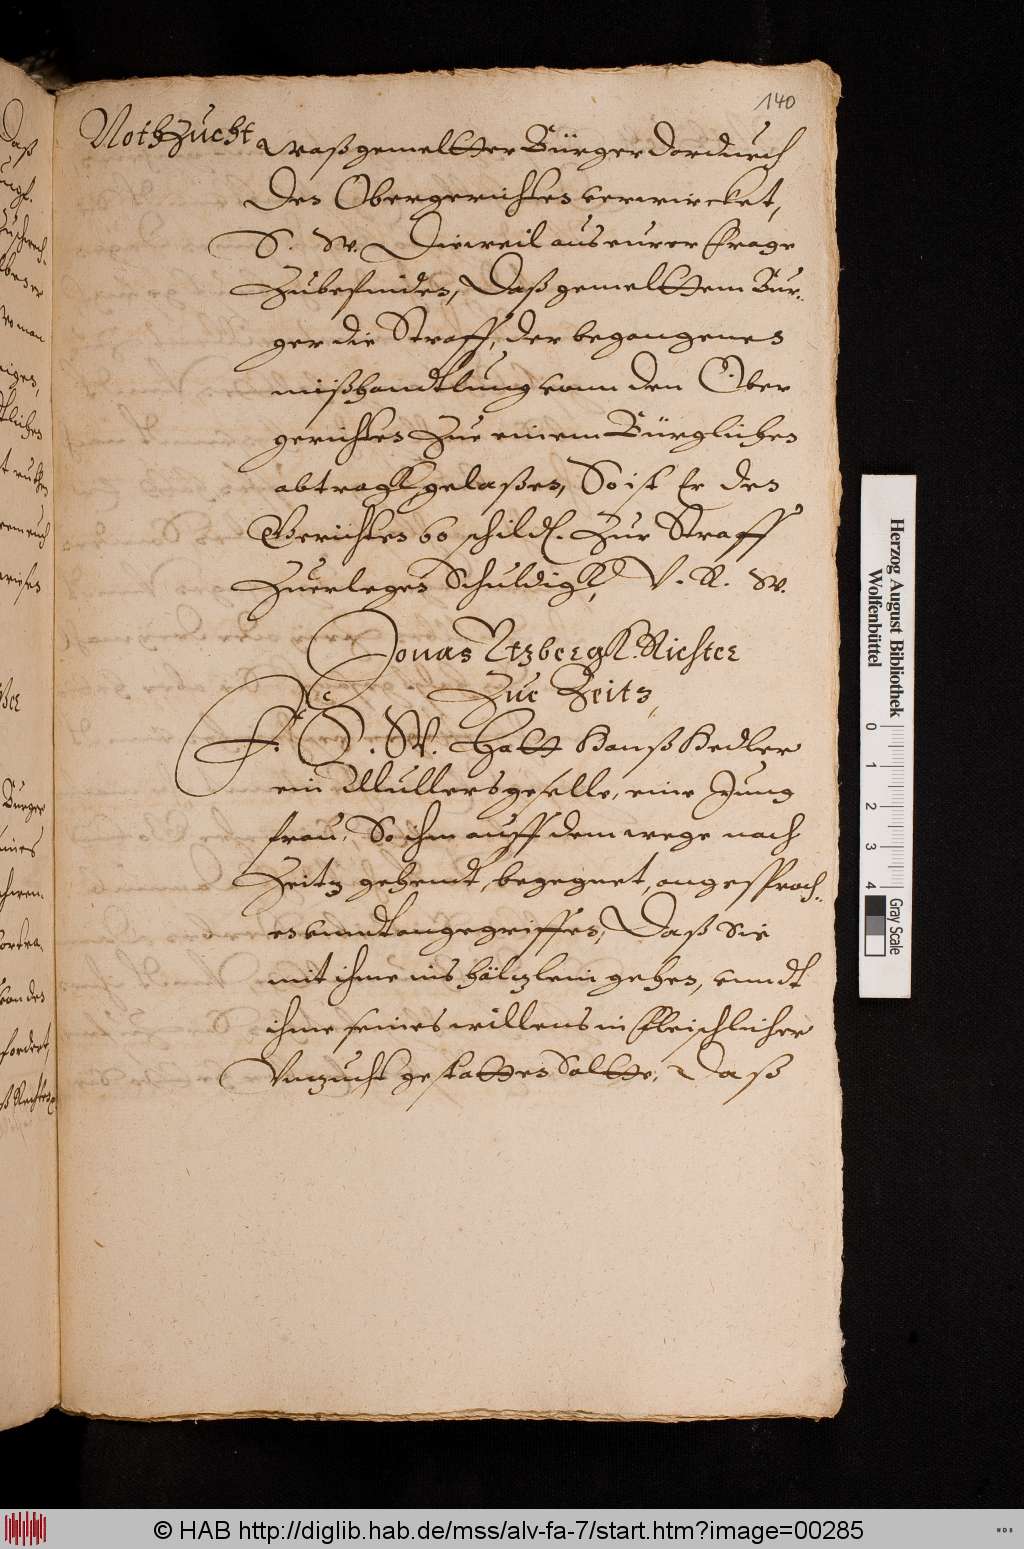 140
Nothzucht
waß gemeltter Bürger dordurch
den Obergerichten verwircket,
S. W. Dieweil aus eurer Frage
Zubefinden, Daß gemelttem Bur-
ger die Straff, der begangenen
mißhandtlung vonn den Ober
gerichten Zue einem Bürglichen
abtragk gelaßen, So ist Er den
Gerichten 60 schild. Zur Straff
Zuerlegen Schuldigk, V. R. W.
Jonas Etzbergk. Richter
Zue Zeitz,
F. D. W. Hatt Hanß Kedler
ein Mullersgeselle, eine Jung
frau, So ihm auff dem wege nach
Zeitz gehendt, begegnet, angesproch-
en vnndt angegriffen, Daß Sie
mit ihme ins höltzlein gehen, vnndt
ihme seines willens in fleischlicher
Vnzucht gestatten Soltte, Daß
Daß
man
Burger
von den
fordert,
Herzog August Bibliothek
Wolfenbüttel
0 1 2 3 4
Gray Scale
© HAB http://diglib.hab.de/mss/alv-fa-7/start.htm?image=00285